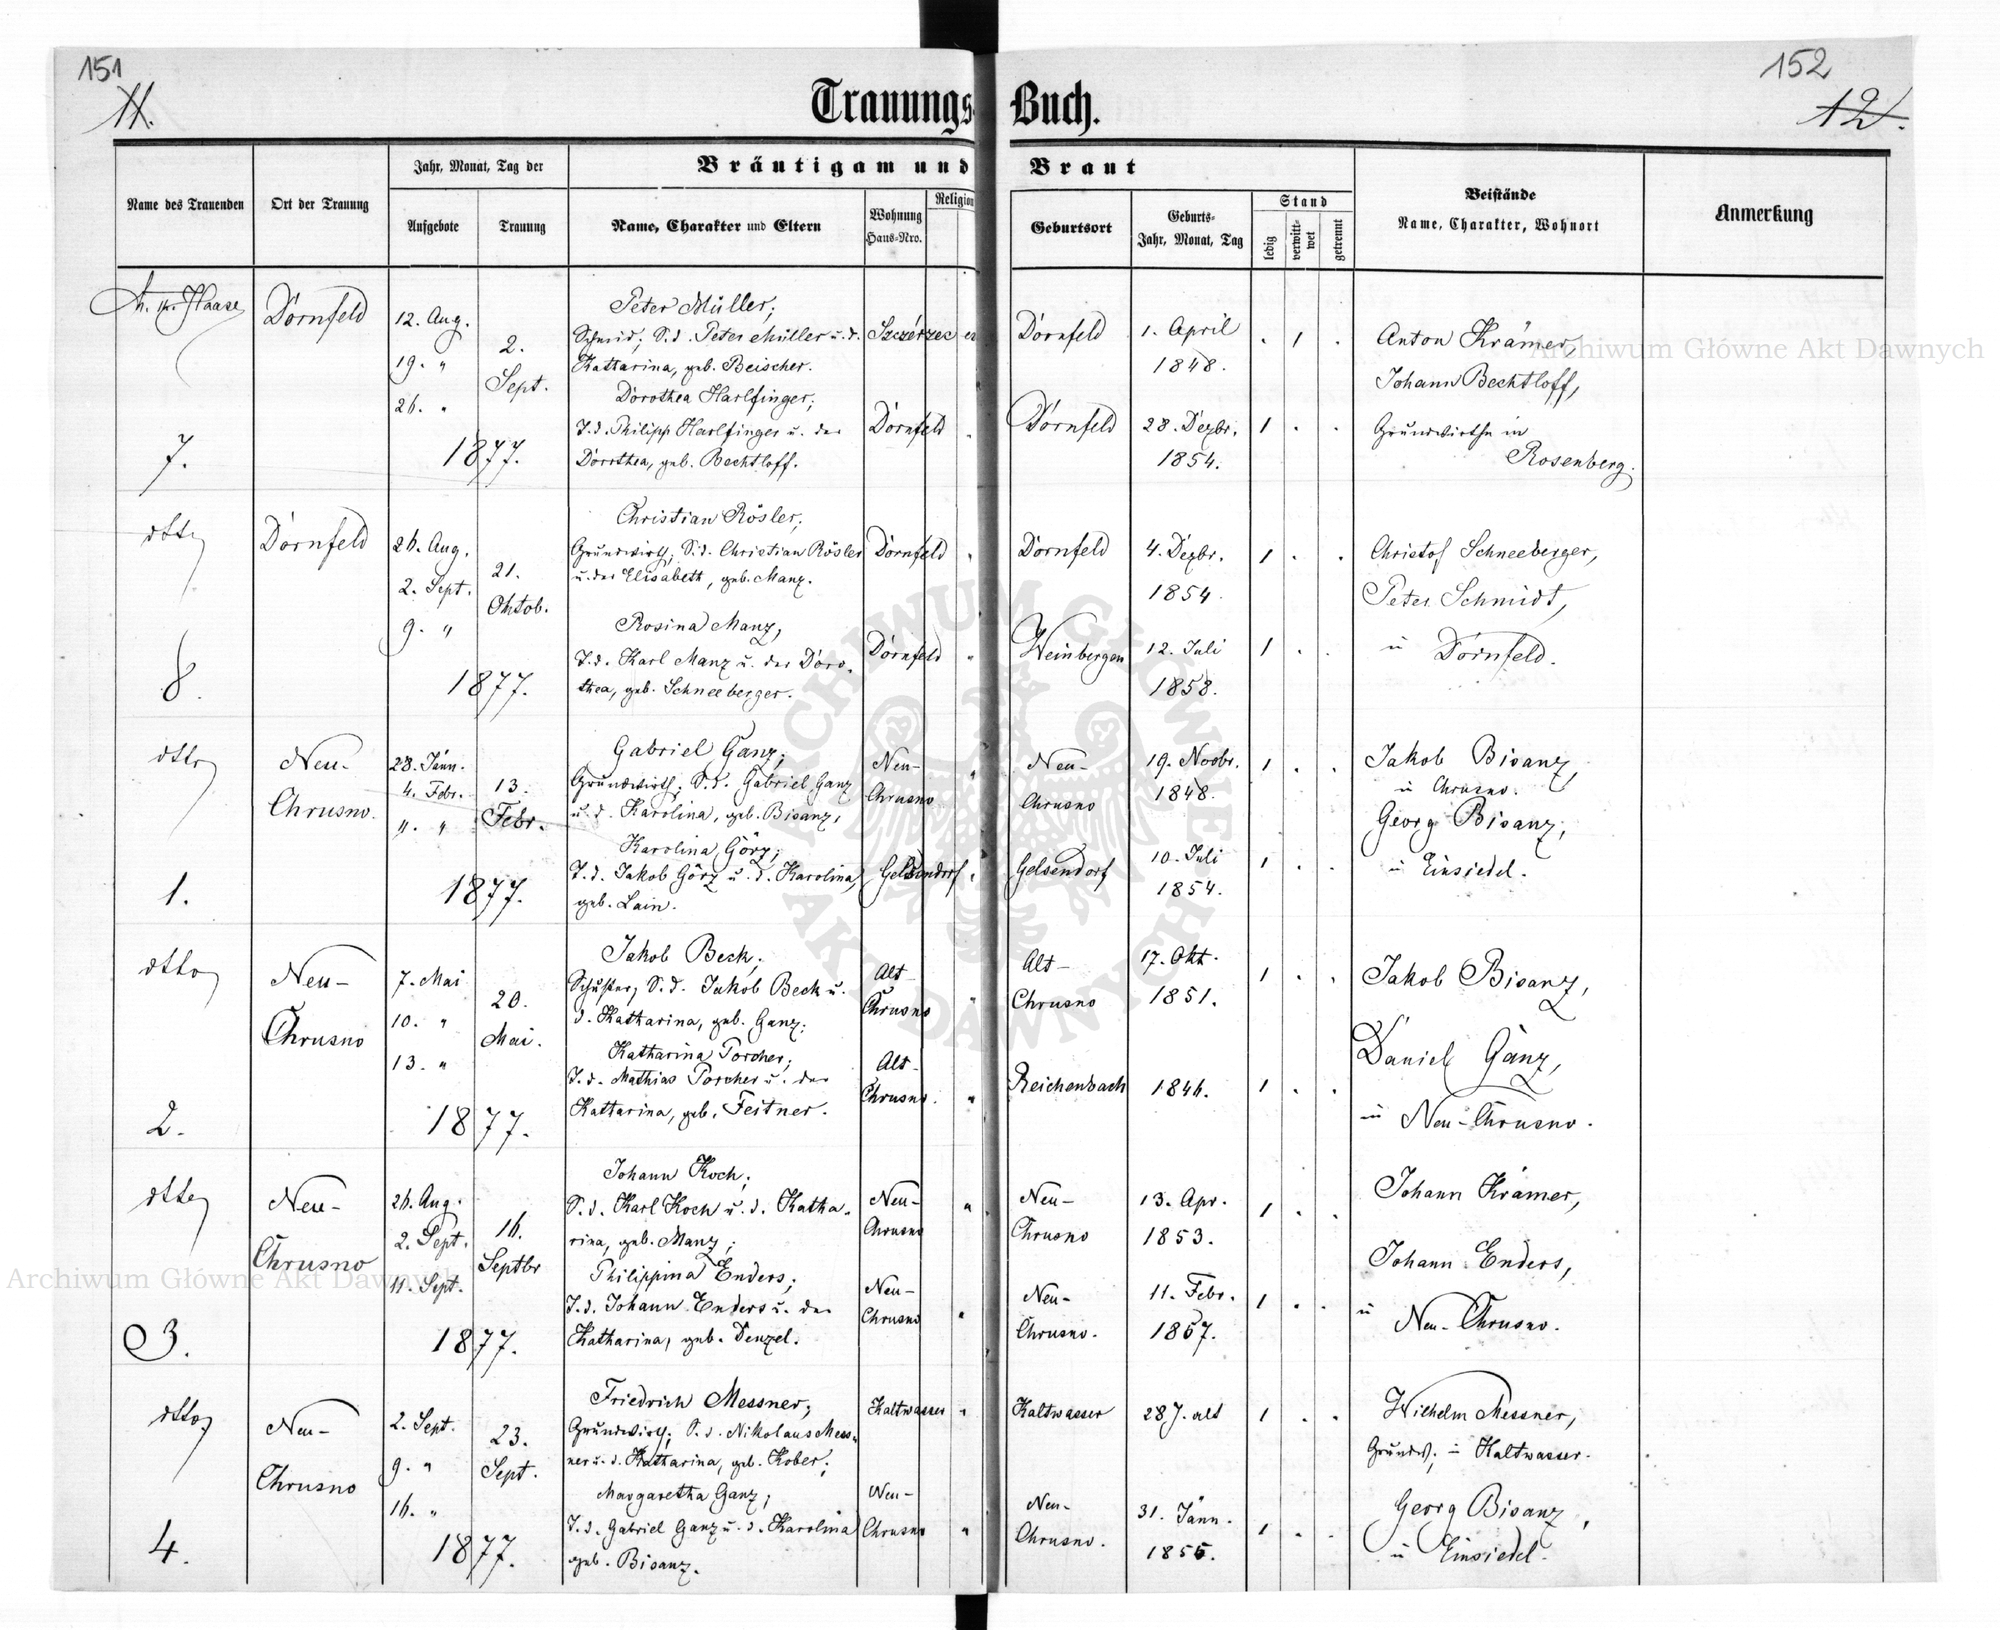 151
11.
152
12.
Trauungs-Buch.
Jahr, Monat, Tag der
Bräutigam und Braut
Name des Trauenden
Ort der Trauung
Aufgebote
Trauung
Name, Charakter und Eltern
Wohnung
Haus-Nro.
Religion
Geburtsort
Geburts-
Jahr, Monat, Tag
Stand
ledig
verwitt-
wet
getrennt
Beistände
Name, Charakter, Wohnort
Anmerkung
Haase
7.
Dornfeld
12. Aug.
19. "
26. "
2.
Sept.
1877.
Peter Müller;
Schmid; S. d. Peter Müller u. d.
Katharina, geb. Beischer.
Dorothea Harlfinger;
T. d. Philipp Harlfinger u. der
Dorothea, geb. Bechtloff.
Szczérzec
Dornfeld
Dornfeld
Dornfeld
1. April
1848.
28. Dezbr.
1854.
Anton Krämer,
Johann Bechtloff,
Grundwirthe in
Rosenberg.
dtto
8.
Dornfeld
26. Aug.
2. Sept.
9. "
21.
Oktob.
1877.
Christian Rösler;
Grundwirth; S. d. Christian Rösler
u. der Elisabeth, geb. Manz.
Rosina Manz;
T. d. Karl Manz u. der Doro-
thea, geb. Schneeberger.
Dornfeld
Dornfeld
Dornfeld
Weinbergen
4. Dezbr.
1854.
12. Juli
1858.
Christof Schneeberger,
Peter Schmidt,
in Dornfeld.
dtto
1.
Neu-
Chrusno.
28. Jänn.
4. Febr.
11. "
13.
Febr.
1877.
Gabriel Ganz;
Grundwirth; S. d. Gabriel Ganz
u. d. Karolina, geb. Bisanz,
Karolina Görz;
T. d. Jakob Görz u. d. Karolina,
geb. Lain.
Neu-
Chrusno
Gelsendorf
Neu-
Chrusno
Gelsendorf
19. Novbr.
1848.
10. Juli
1854.
Jakob Bisanz,
in Chrusno.
Georg Bisanz,
in Einsiedel.
dtto
2.
Neu-
Chrusno
7. Mai
10. "
13. "
20.
Mai.
1877.
Jakob Beck;
Schuster, S. d. Jakob Beck u.
d. Katharina, geb. Ganz;
Katharina Porcher;
T. d. Mathias Porcher u. der
Katharina, geb. Feitner.
Alt-
Chrusno
Alt-
Chrusno.
Alt-
Chrusno
Reichenbach
17. Okt.
1851.
1846.
Jakob Bisanz,
Daniel Ganz,
in Neu-Chrusno.
dtto
3.
Neu-
Chrusno
26. Aug.
2. Sept.
11. Sept.
16.
Septbr
1877.
Johann Koch;
S. d. Karl Koch u. d. Katha-
rina, geb. Manz;
Philippina Enders;
T. d. Johann Enders u. der
Katharina, geb. Denzel.
Neu-
Chrusno
Neu-
Chrusno
Neu-
Chrusno
Neu-
Chrusno.
13. Apr.
1853.
11. Febr.
1857.
Johann Krämer,
Johann Enders,
in Neu-Chrusno.
dtto
4.
Neu-
Chrusno
2. Sept.
9. "
16. "
23.
Sept.
1877.
Friedrich Messner;
Grundwirth; S. d. Nikolaus Mess-
ner u. d. Katharina, geb. Kober;
Margaretha Ganz;
T. d. Gabriel Ganz u. d. Karolina
geb. Bisanz.
Kaltwasser
Neu-
Chrusno
Kaltwasser
Neu-
Chrusno.
28 J. alt
31. Jänn.
1855.
Wilhelm Messner,
Grundw. in Kaltwasser.
Georg Bisanz,
in Einsiedel.
Archiwum Główne Akt Dawnych
Archiwum Główne Akt Dawnych
ARCHIWUM GŁÓWNE AKT DAWNYCH